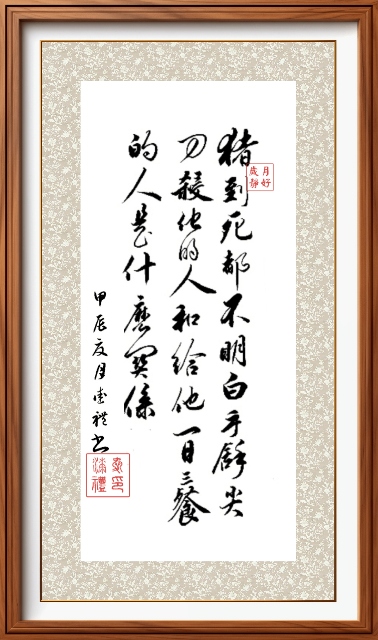 猪到死都不明白手握尖
刀殺他的人和給他一日三餐
的人是什麽関係
甲辰夏月李禮书
歲月
靜好